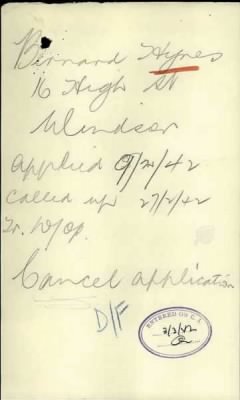 Bernard Hynes
16 High St
Windsor
Applied 9/2/42
Called up 27/2/42
Tr. W/Op.
Cancel application
D/F
ENTERED ON C.A.
3/3/42